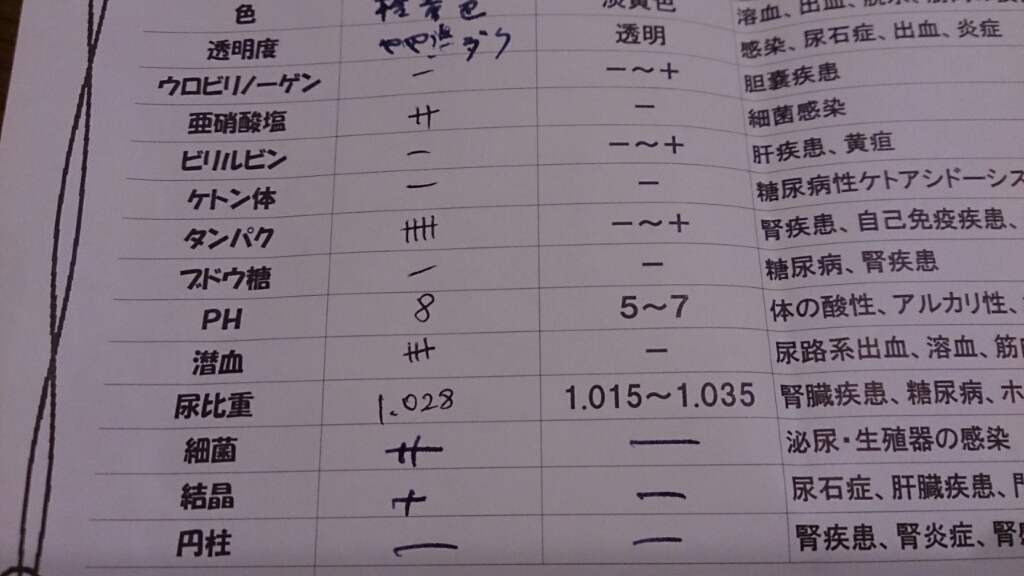 色 橙黄色 淡黄色 溶血、出血、脱水、
透明度 やや混ダク 透明 感染、尿石症、出血、炎症
ウロビリノーゲン － －～＋ 胆嚢疾患
亜硝酸塩 ++ － 細菌感染
ビリルビン － －～＋ 肝疾患、黄疸
ケトン体 － － 糖尿病性ケトアシドーシス
タンパク ++++ －～＋ 腎疾患、自己免疫疾患、
ブドウ糖 － － 糖尿病、腎疾患
PH 8 5～7 体の酸性、アルカリ性、
潜血 +++ － 尿路系出血、溶血、筋肉
尿比重 1.028 1.015～1.035 腎臓疾患、糖尿病、ホ
細菌 ++ － 泌尿・生殖器の感染
結晶 + － 尿石症、肝臓疾患、門
円柱 － － 腎疾患、腎炎症、腎